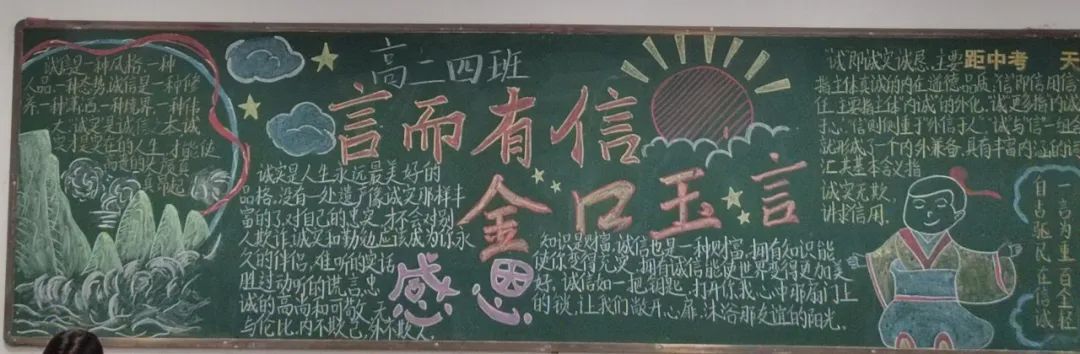 诚信是一种风格,一种
人品,一种态势,诚信是一种修
养一种一种境界,一种伟
大,诚实是诚信之本,诚
实才是实在的人生,才能使
高二四班
言而有信
金口玉言
诚实是人生永远最美好的
品格,没有一处遗产像诚实那样丰
富的了,对自己的忠实,才不会对别
人欺诈,诚实和勤劳应该成为你永
久的伴侣,难听的实话
胜过动听的谎言,忠
诚的高尚和可敬,无
与伦比,内不欺己,外不欺人。
感恩
知识是财富,诚信也是一种财富,拥有知识能
使你变得充实,拥有诚信能使世界变得更加美
好,诚信如一把钥匙,打开你我心中那扇门上
的锁,让我们敞开心扉,沐浴那友谊的阳光。
距中考 天
“诚”即诚实诚恳,主要
指主体真诚的内在道德品质,“信”即信用信
任,主要指主体“内诚”的外化,“诚”更多指“内诚于
心”,“信”则侧重于“外信于人”,“诚”与“信”一组合
就形成了一个内外兼备,具有丰富内涵的词
汇,其基本含义指
诚实无欺,
讲求信用。
一言为重百金轻
自古驱民在信诚